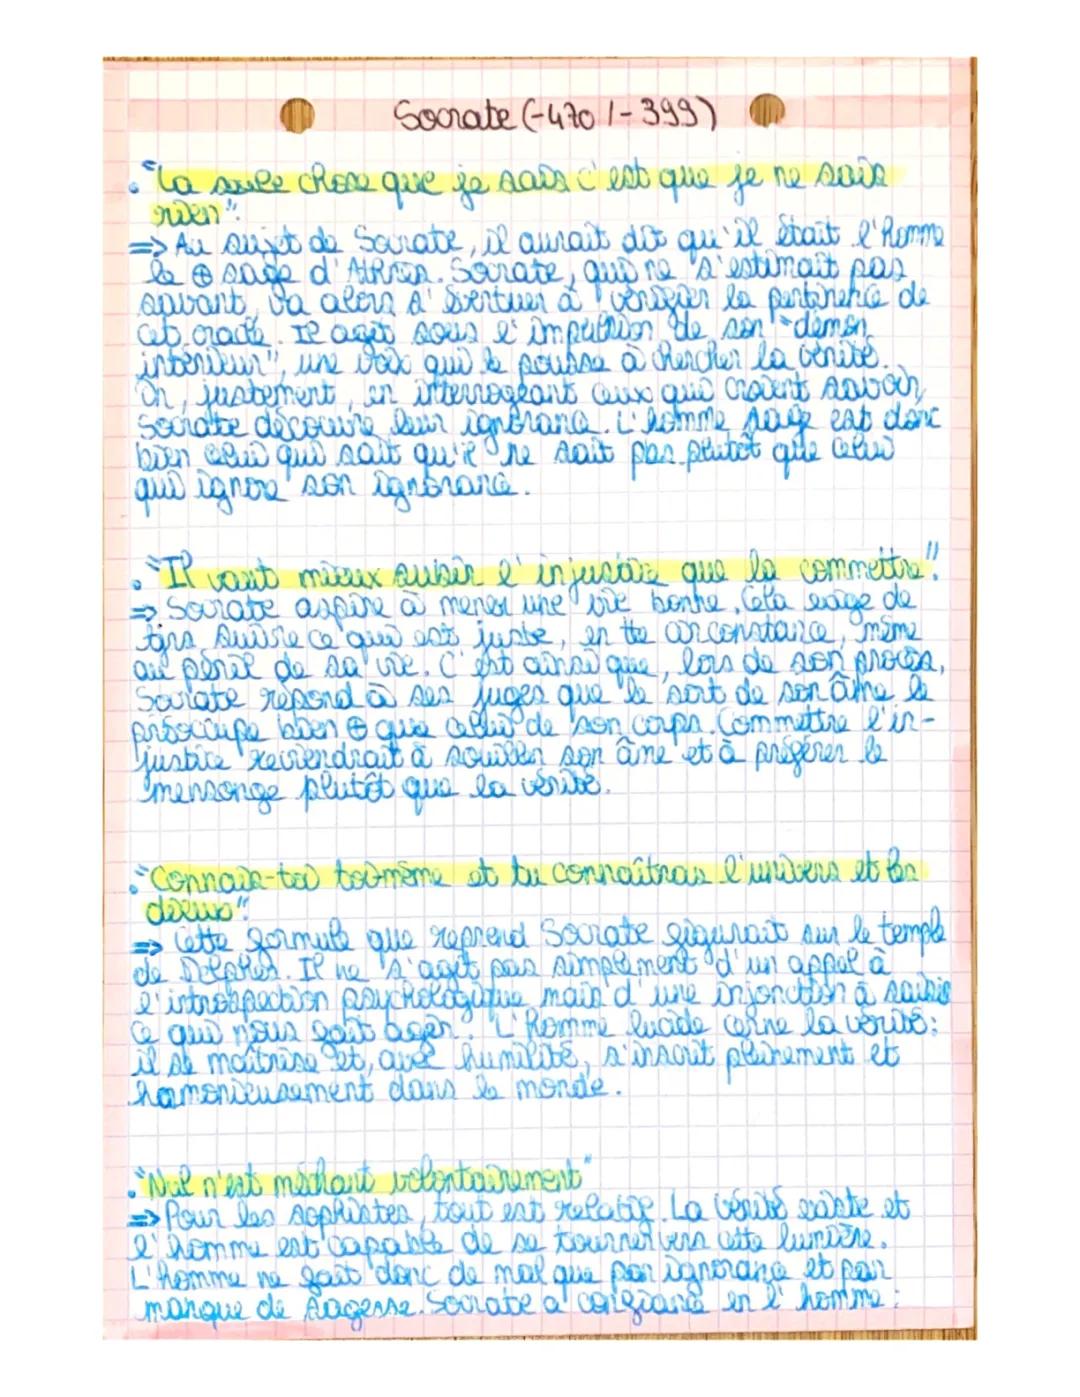 Socrate (-470 / -399)
• "La seule chose que je sais c'est que je ne sais
rien".
=> Au sujet de Socrate, il aurait dit qu'il était l'Homme
le ⊕ sage d'Athènes. Socrate, qui ne s'estimait pas
savant, va alors s'évertuer à vérifier la pertinence de
cet oracle. Il agit sous l'impulsion de son "démon
intérieur", une voix qui le pousse à chercher la vérité.
Or, justement, en interrogeant ceux qui croient savoir,
Socrate découvre leur ignorance. L'homme sage est donc
bien celui qui sait qu'il ne sait pas plutôt que celui
qui ignore son ignorance.
• "Il vaut mieux subir l'injustice que la commettre".
=> Socrate aspire à mener une vie bonne. Cela exige de
tjrs suivre ce qui est juste, en tte circonstance, même
au péril de sa vie. C'est ainsi que, lors de son procès,
Socrate répond à ses juges que le sort de son âme le
préoccupe bien ⊕ que celui de son corps. Commettre l'in-
justice reviendrait à souiller son âme et à préférer le
mensonge plutôt que la vérité.
• "Connais-toi toi-même et tu connaîtras l'univers et les
dieux".
=> Cette formule que reprend Socrate figurait sur le temple
de Delphes. Il ne s'agit pas simplement d'un appel à
l'introspection psychologique mais d'une injonction à saisir
ce qui nous fait agir. L'homme lucide cerne la vérité :
il se maîtrise et, avec humilité, s'inscrit pleinement et
harmonieusement dans le monde.
• "Nul n'est méchant volontairement"
=> Pour les sophistes, tout est relatif. La vérité existe et
l'homme est capable de se tourner vers cette lumière.
L'homme ne fait donc de mal que par ignorance et par
manque de sagesse. Socrate a confiance en l'homme :